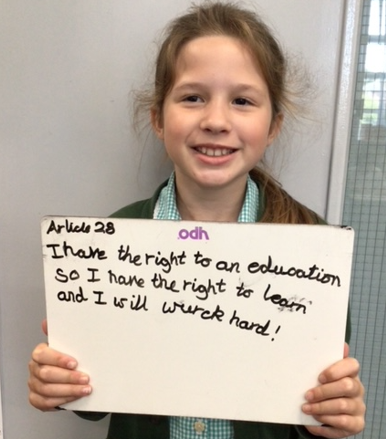 Article 28
odh
I have the right to an education
so I have the right to learn
and I will wurck hard!